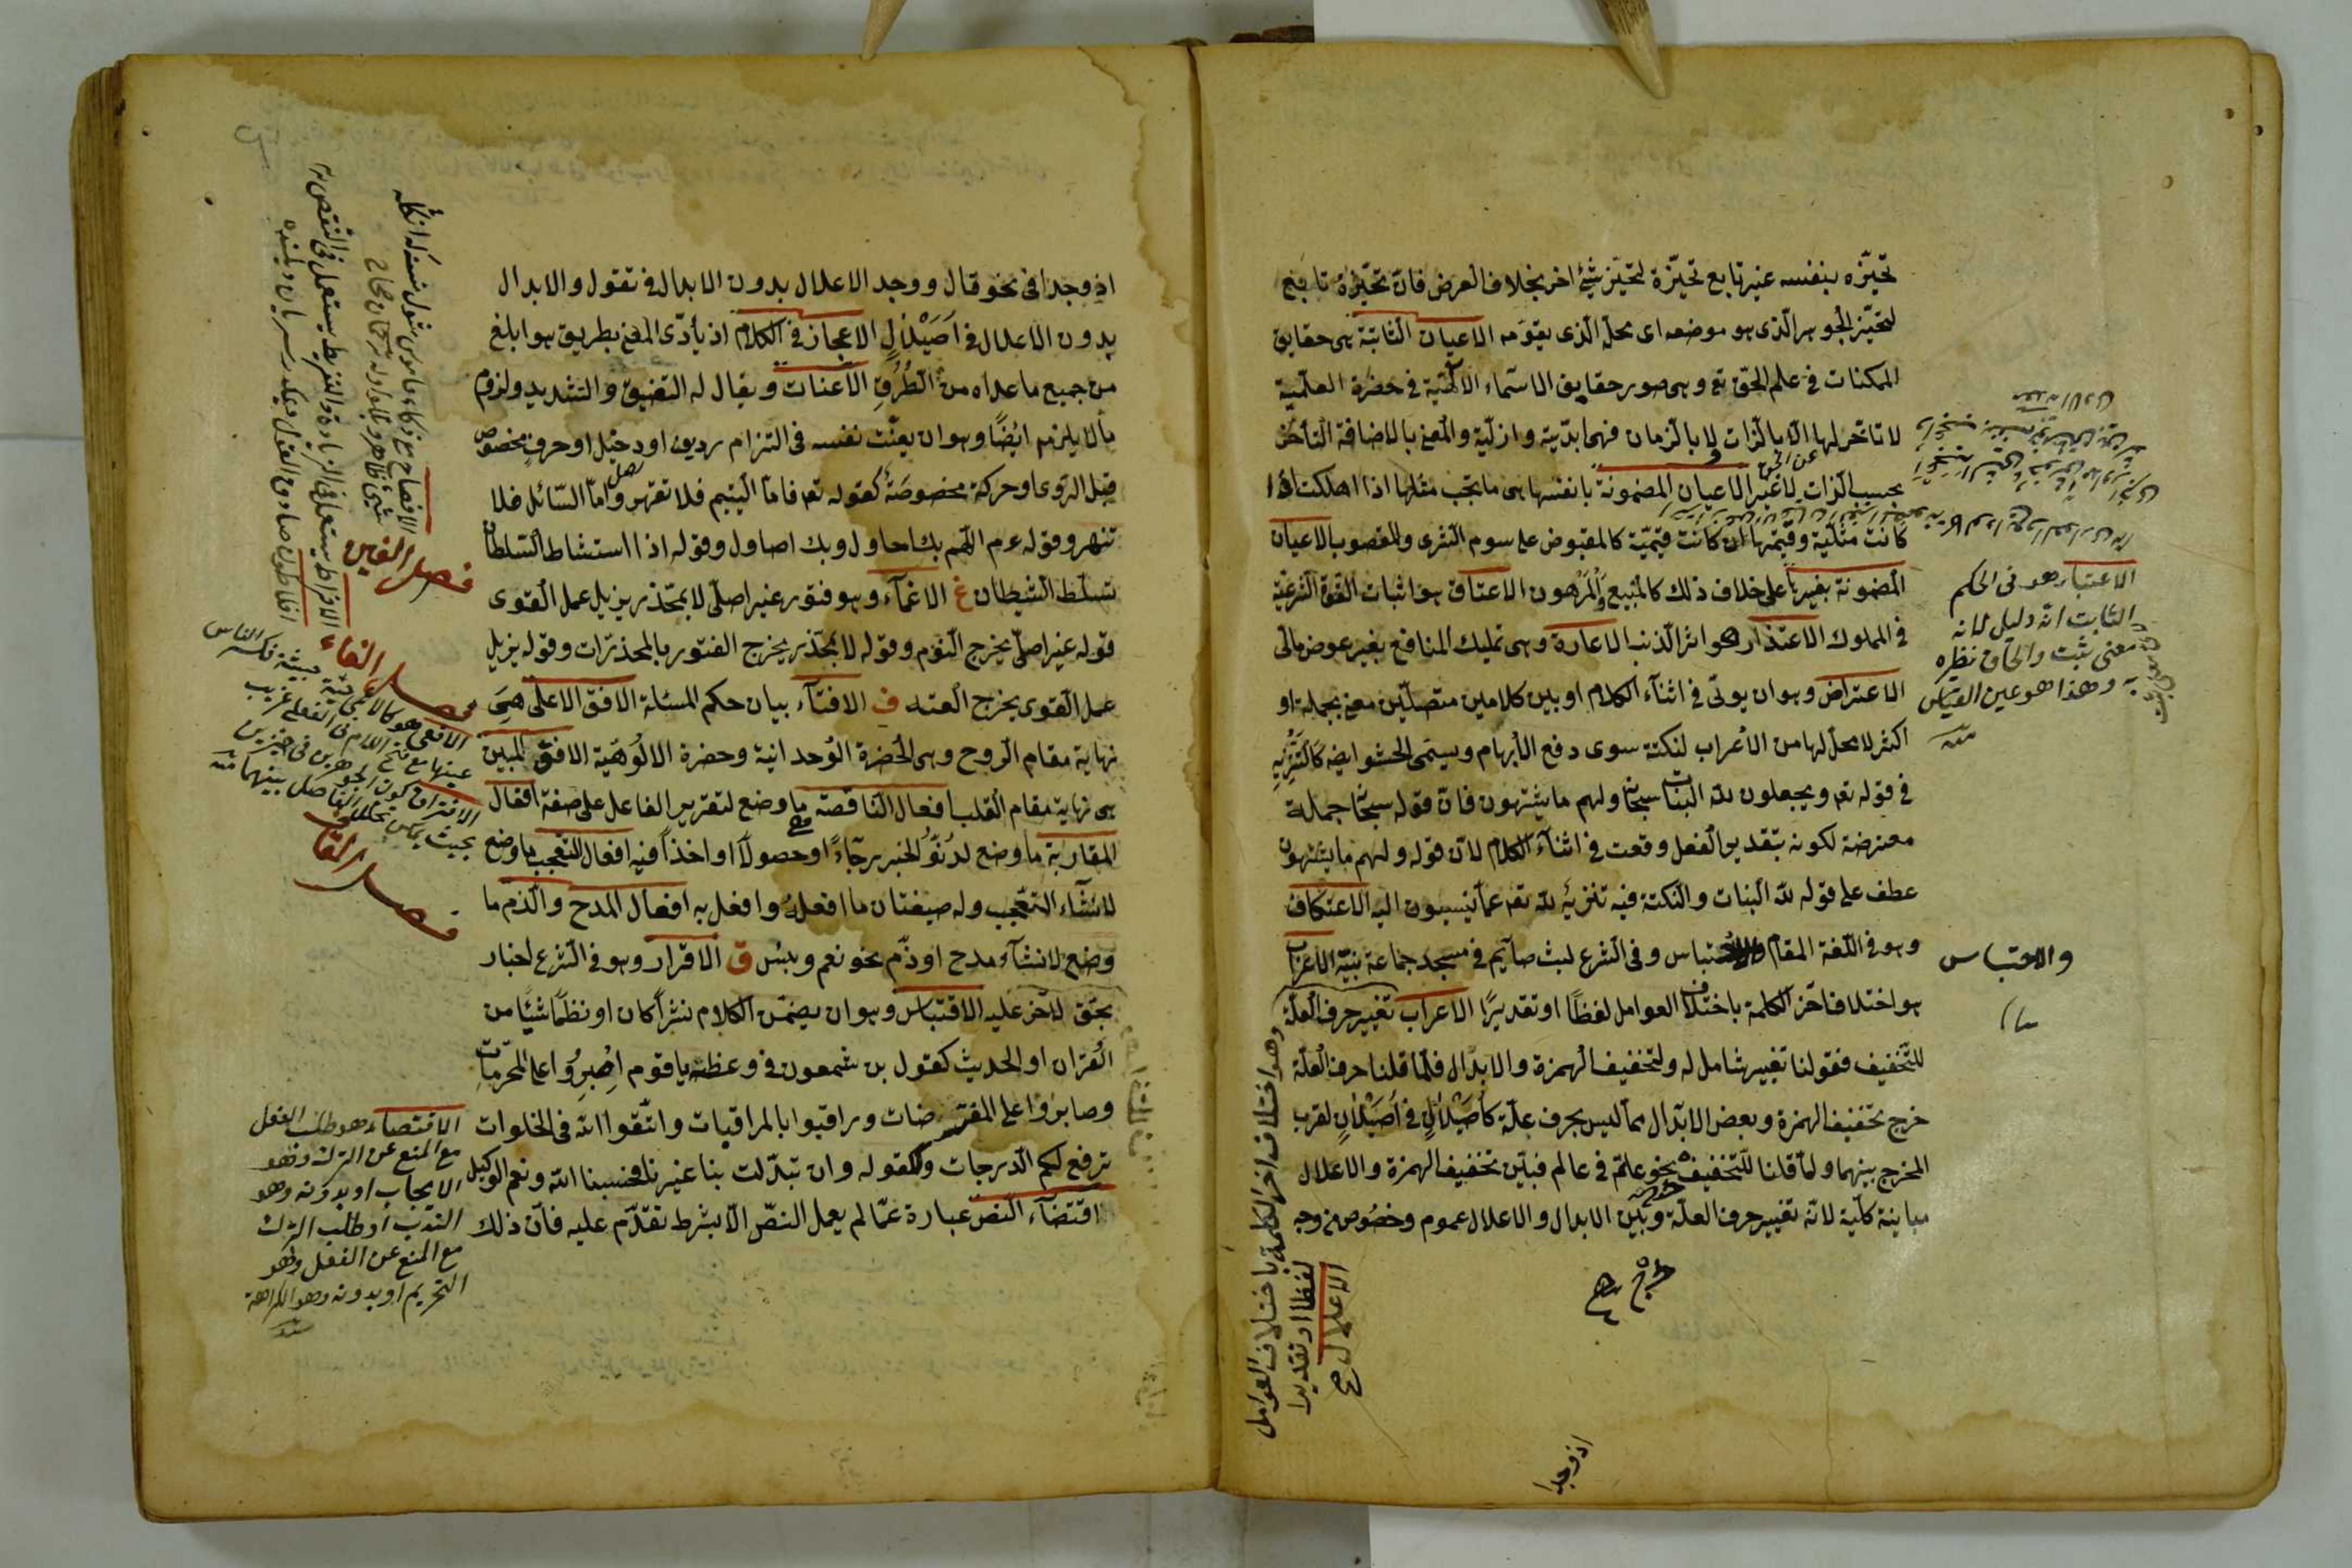 تحيّزه بنفسه غير تابع تحيّزه لتحيّز شئ اخر بخلاف العرض فانّ تحيّزه تابع
لتحيّز الجوهر الّذى هو موضعه اى محلّه الّذى يقوّمه الاعيان الثابتة هى حقايق
الممكنات فى علم الحقّ تع وهى صور حقايق الاسماء الالٓهيّة فى حضرة العلميّة
لا تاخّر لها الّا بالّذات لا بالزمان فهى ابديّة وازليّة والمعنى بالاضافة التأخّر
بحسب الذات لا غير الاعيان المضمونة بانفسها هى ما يجب مثلها اذا اهلكت اذا
عن الحق
كانت مثليّة وقيمتها ان كانت قيميّة كالمقبوض على سوم الشرى والمغصوب الاعيان
المضمونة بغيرها على خلاف ذلك كالمبيع والمرهون الاعتاق هو اثبات القوّة الشرعيّة
فى المملوك الاعتذار محو اثر الذنب الاعارة وهى تمليك المنافع بغير عوض مالى
الاعتراض وهو ان يؤتى فى اثناء الكلام او بين كلامين متصلين معنى بجملة او
اكثر لا محلّ لها من الأعراب لنكتة سوى دفع الأبهام ويسمّى الحشو ايضه كالتنزيه
فى قوله تع ويجعلون للّه البنات سبحانه ولهم ما يشتهون فانّ قوله سبحانه جملة
معترضة لكونه بتقدير الفعل وقعت فى اثناء الكلام لانّ قوله ولهم ما يشتهون
عطف على قوله للّه البنات والنكتة فيه تنزيه للّه تع عمّا ينسبون اليه الاعتكاف
وهو فى اللّغة المقام والاحتباس وفى الشرع لبث صآيم فى مسجد جماعة بنيّة الاعراب
هو اختلاف اخر الكلمة باختلاف العوامل لفظًا او تقديرًا الاعراب تغيير حرف العلّة
للتّخفيف فقولنا تغيير شامل له ولتخفيف الهمزة والابدال فلمّا قلنا حرف العلّة
خرج تخفيف الهمزة وبعض الابدال ممّا ليس بحرف علّة كأصيلال فى أصيلان لقرب
المخرج بينهما ولمّا قلنا للتّخفيف خرج نحو عألم فى عالم فبين تخفيف الهمزة والاعلال
مباينة كلّية لانّه تغيير حرف العلّة وبين الابدال والاعلال عموم وخصوص من وجه
الاعتبار هو فى الحكم
الثابت انّه دليل لانه
معنى ثبت والحاق نظيره
به وهذا هو عين القياس
منه
والاحتباس
وهو اختلاف اخر الكلمة باختلاف العوامل
لفظا او تقديرا
الاعلال صح
اذ وجدا
اذ وجدا فى نحو قال ووجد الاعلال بدون الابدال فى تقول والابدال
بدون الاعلال فى اصيلال الاعجاز فى الكلام ان يأدّى المعنى بطريق هو ابلغ
من جميع ما عداه من الطرق الاعنات ويقال له التضيق والتشديد ولزوم
ما لا يلزم ايضًا وهو ان يعنّت نفسه فى التزام رديف او دخيل او حرف مخصوص
قبل الروى او حركة مخصوصة كقوله تع فامّا اليتيم فلا تقهر وامّا السّائل فلا
تنهر وقوله عم اللّهم بك احاول وبك اصاول وقوله اذا استشاط السّلطان
تسلّط الشيطان غ الاغمآء وهو فتور غير اصلىّ لا بمخدّر يزيل عمل القوى
قوله غير اصلىّ يخرج النّوم وقوله لا بمخدّر يخرج الفتور بالمخدّرات وقوله يزيل
عمل القوى يخرج العته ف الافتآء بيان حكم المسئلة الافق الاعلى هى
نهاية مقام الرّوح وهى الحضرة الوحدانية وحضرة الالوهيّة الافق المبين
هى نهاية مقام القلب افعال الناقصة ما وضع لتقرير الفاعل على صفة افعال
المقاربة ما وضع لدنوّ الخبر رجآءً او حصولًا او اخذًا فيه افعال التعجّب ما وضع
لانشآء التعجّب وله صيغتان ما افعله وافعل به افعال المدح والذّم ما
وضع لانشآء مدح او ذمّ نحو نعم وبئس ق الاقرار وهو فى الشرع اخبار
بحقّ لاخر عليه الاقتباس وهو ان يضمّن الكلام نثرًا كان او نظمًا شيئًا من
القران او الحديث كقول بن شمعون فى وعظه يا قوم اصبروا على المحرّمات
وصابروا على المفترضات وراقبوا بالمراقبات واتّقوا اللّه فى الخلوات
ترفع لكم الدّرجات وكقوله وان تبدّلت بنا غيرنا فحسبنا اللّه ونعم الوكيل
اقتضآء النّص عبارة عمّا لم يعمل النصّ الّا بشرط تقدّم عليه فانّ ذلك
فصل الغين
فصل الفاء
فصل القاف
الاقتضاء هو طلب الفعل
مع المنع عن الترك وهو
الايجاب او بدونه وهو
الندب او طلب الترك
مع المنع عن الفعل وهو
التحريم او بدونه وهو الكراهة